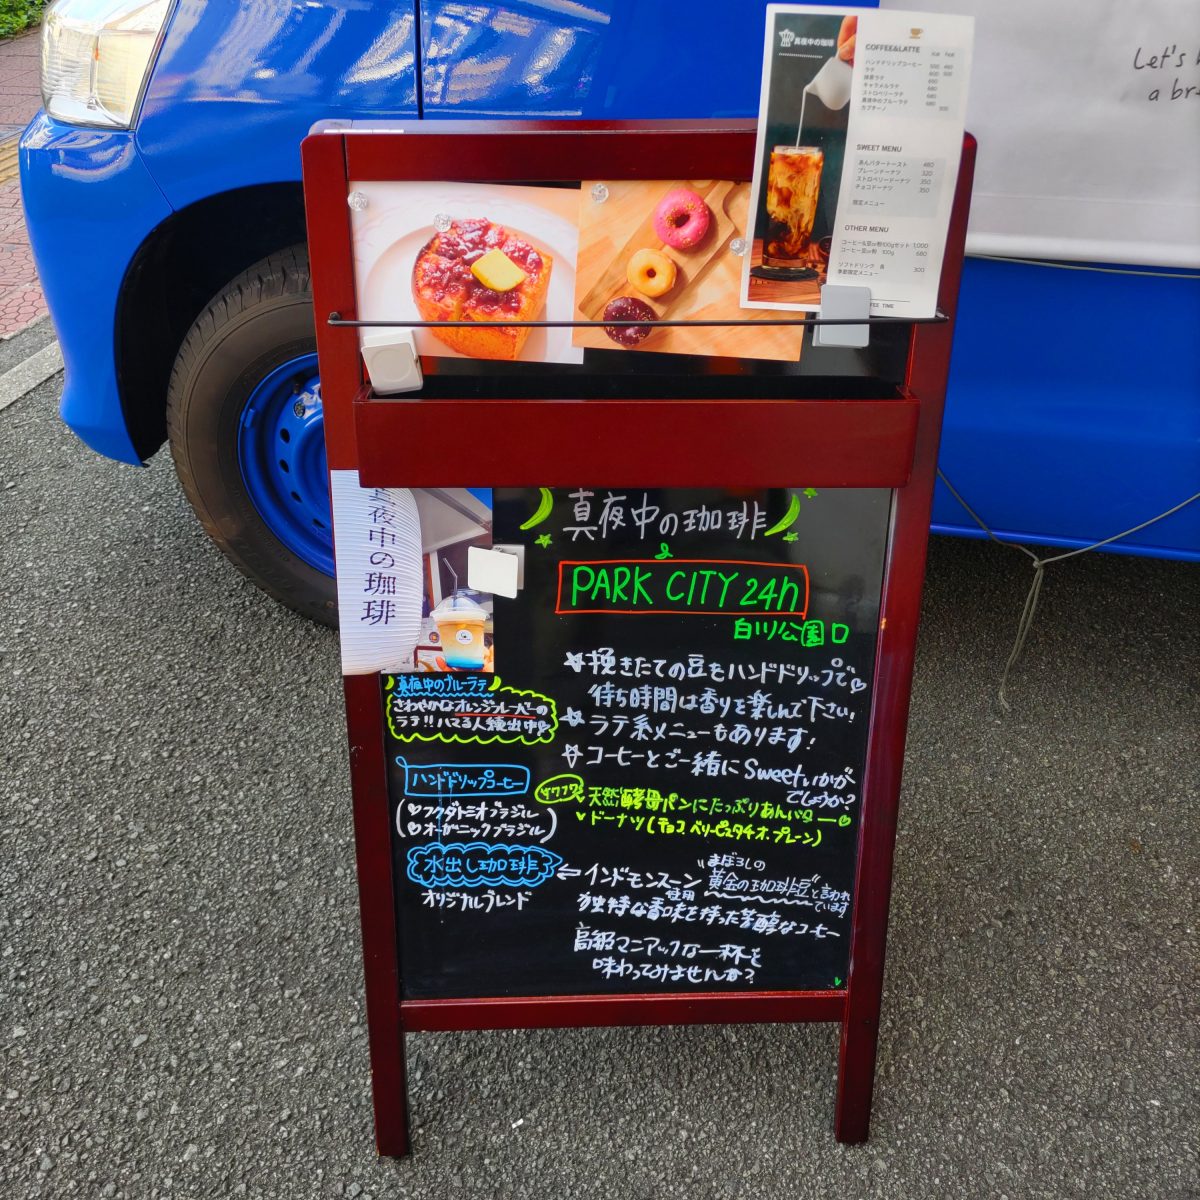 Let's
a br
真夜中の珈琲
COFFEE&LATTE
ice hot
ハンドドリップコーヒー 550 460
ラテ 600 500
抹茶ラテ 660
キャラメルラテ 680
ストロベリーラテ 680
真夜中のブルーラテ 680
カプチーノ 500
SWEET MENU
あんバタートースト 480
プレーンドーナツ 320
ストロベリードーナツ 350
チョコドーナツ 350
限定メニュー
OTHER MENU
コーヒー&豆or粉100gセット 1,000
コーヒー豆or粉 100g 660
ソフトドリンク 各 300
季節限定メニュー
FEE TIME
真夜中の珈琲
真夜中の珈琲
PARK CITY 24h
白川公園口
☆挽きたての豆をハンドドリップで♡
待ち時間は香りを楽しんで下さい!
☆ラテ系メニューもあります!
☆コーヒーとご一緒にSweetいかが
でしょうか?
サクフワ
天然酵母パンにたっぷりあんバター♡
ドーナツ(チョコ、ベリーピスタチオ、プレーン)
真夜中のブルーラテ
さわやかなオレンジフレーバーの
ラテ!!ハマる人続出中♪
ハンドドリップコーヒー
(♡フクダトミオブラジル
♡オーガニックブラジル)
水出し珈琲
オリジナルブレンド
⇐インドモンスーン使用
"まぼろしの
黄金の珈琲豆"と言われ
ています
独特な香味を持った芳醇なコーヒー
高級マニアックな一杯を
味わってみませんか?